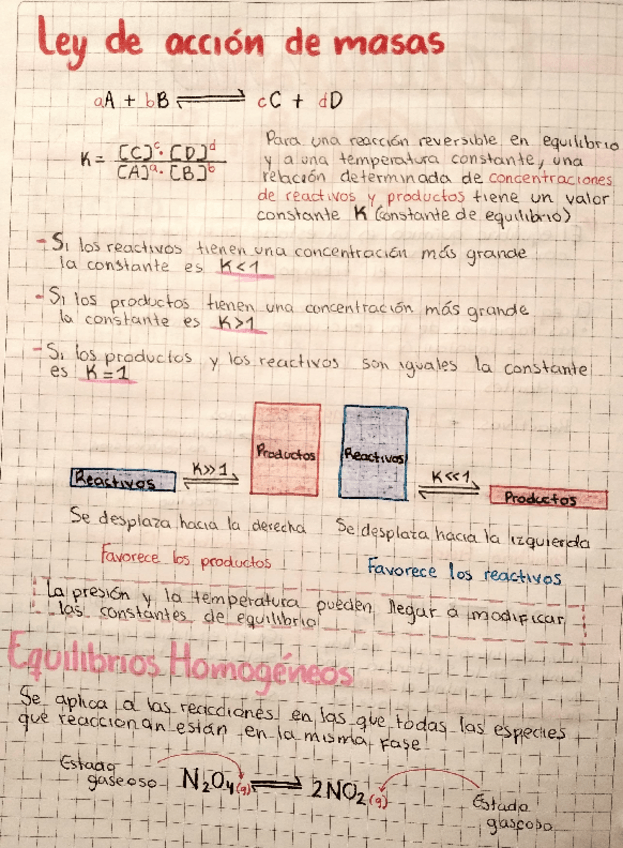 Ley de acción de masas
aA + bB ⇌ cC + dD
K = [C]^c · [D]^d / [A]^a · [B]^b
Para una reacción reversible en equilibrio
y a una temperatura constante, una
relación determinada de concentraciones
de reactivos y productos tiene un valor
constante K (constante de equilibrio)
- Si los reactivos tienen una concentración más grande
la constante es K<1
- Si los productos tienen una concentración más grande
la constante es K>1
- Si los productos y los reactivos son iguales la constante
es K=1
Reactivos K>>1 Productos
Reactivos K<<1 Productos
Se desplaza hacia la derecha
Favorece los productos
Se desplaza hacia la izquierda
Favorece los reactivos
La presión y la temperatura pueden llegar a modificar
las constantes de equilibrio
Equilibrios Homogéneos
Se aplica a las reacciones en las que todas las especies
que reaccionan están en la misma fase
Estado
gaseoso
N₂O₄(g) ⇌ 2NO₂(g)
Estado
gaseoso